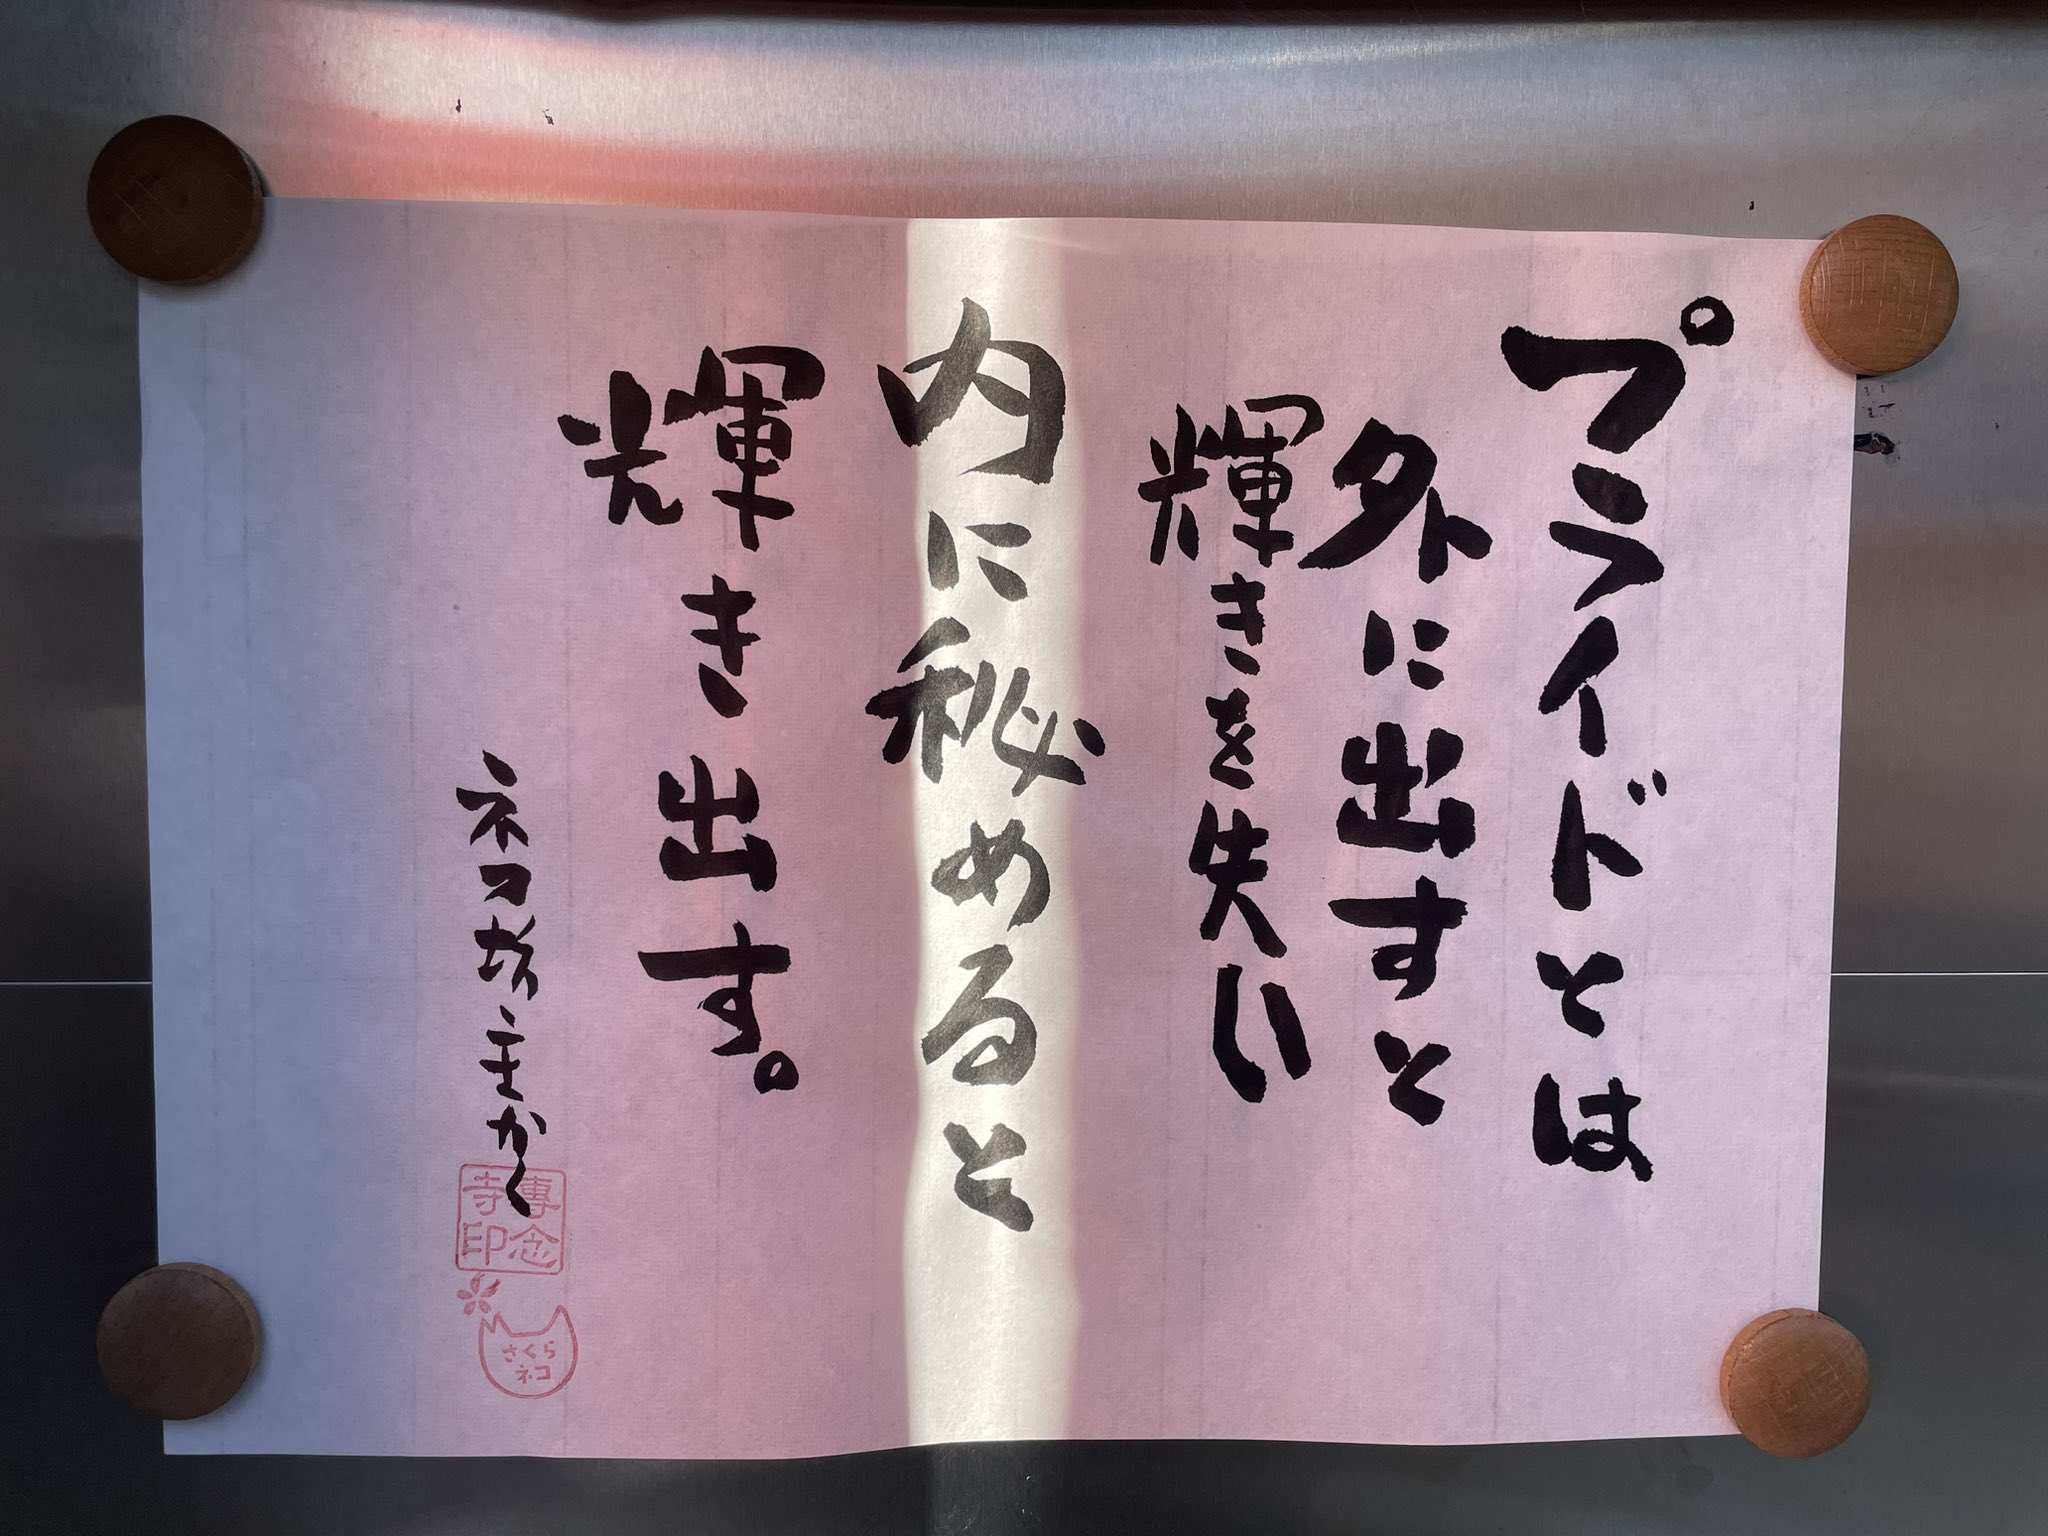 プライドとは
外に出すと
輝きを失い
内に秘めると
輝き出す。
ネコ坊主かく
專念
寺印
さくら
ネコ